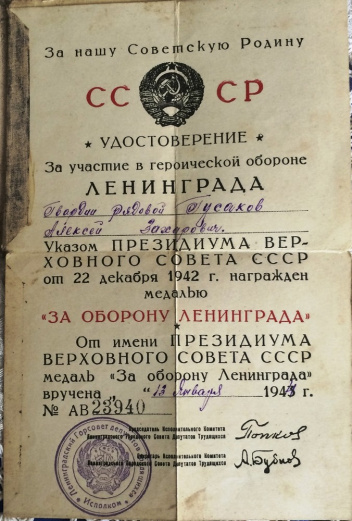 За нашу Советскую Родину
СС СР
★ УДОСТОВЕРЕНИЕ ★
За участие в героической обороне
ЛЕНИНГРАДА
Гвардии рядовой Гусаков
Алексей Захарович.
Указом ПРЕЗИДИУМА ВЕР-
ХОВНОГО СОВЕТА СССР
от 22 декабря 1942 г. награжден
медалью
«ЗА ОБОРОНУ ЛЕНИНГРАДА»
От имени ПРЕЗИДИУМА
ВЕРХОВНОГО СОВЕТА СССР
медаль „За оборону Ленинграда"
вручена „ 12 января 194 г.
№ АВ 23940
Председатель Исполнительного Комитета
Ленинградского Городского Совета Депутатов Трудящихся
Попков
Секретарь Исполнительного Комитета
Ленинградского Городского Совета Депутатов Трудящихся
А. Бубнов
Ленинградский Горсовет депутатов трудящихся
Исполком